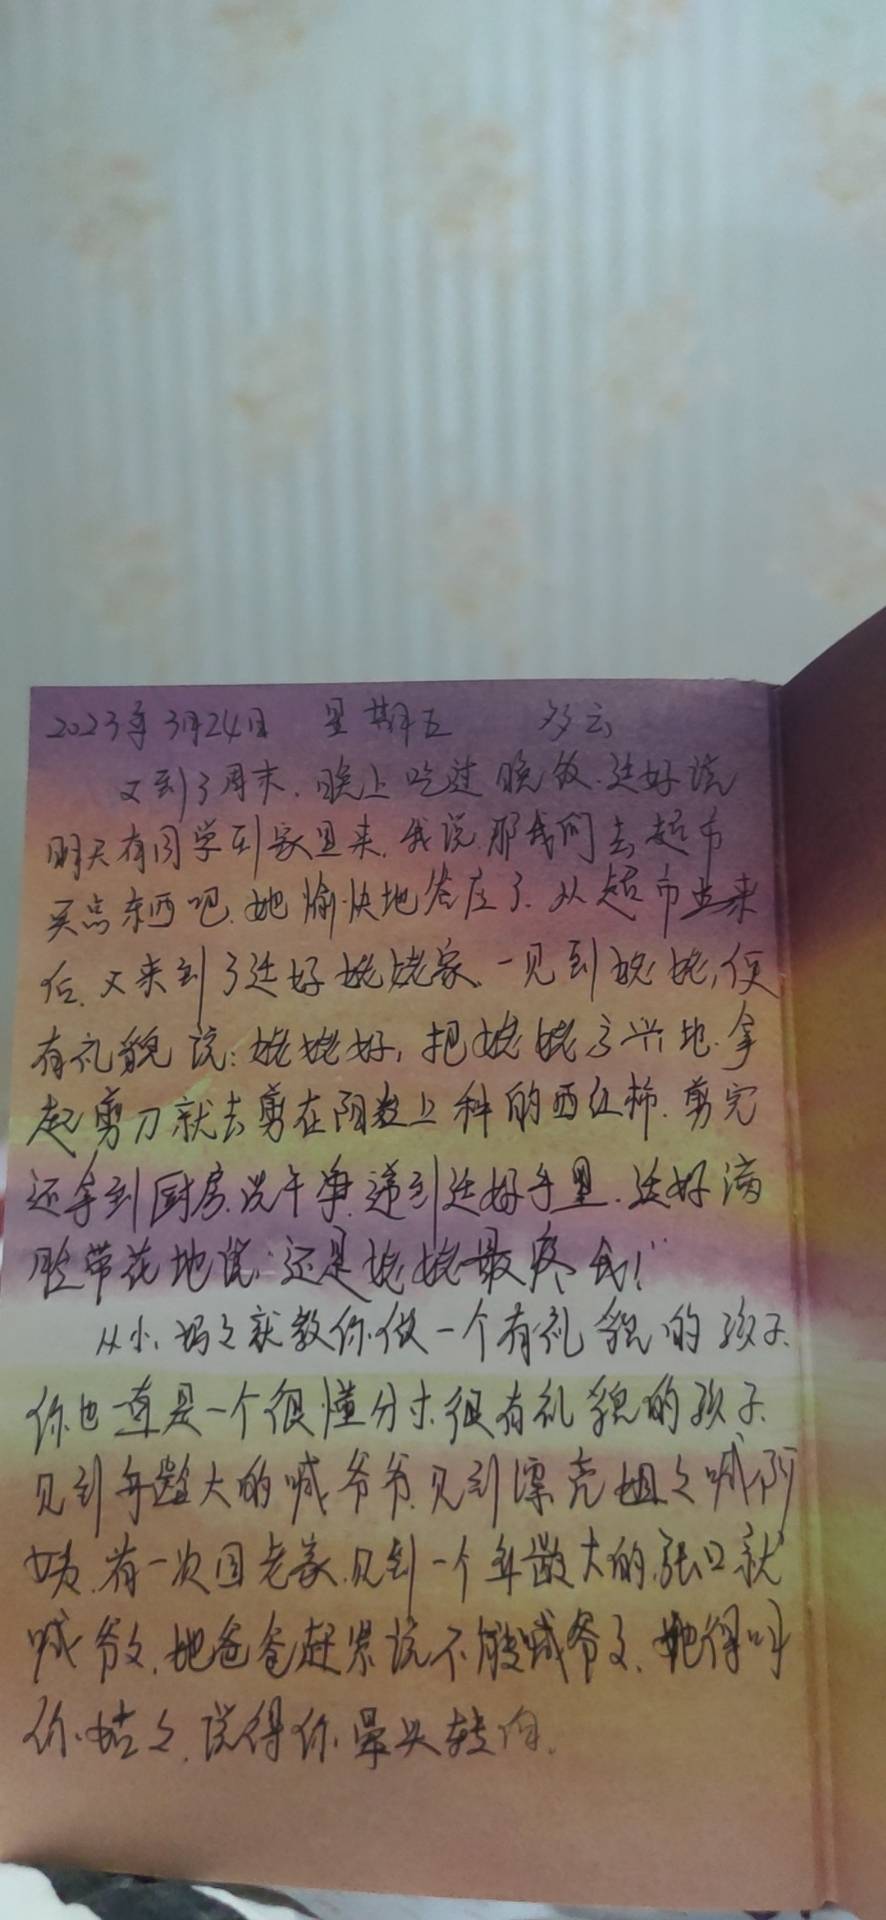 2023年3月24日 星期五 多云
又到了周末.晚上吃过晚饭.廷好说
明天有同学到家里来.我说.那我们去超市
买点东西吧.她愉快地答应了.从超市出来
后.又来到了廷好姥姥家.一见到姥姥,便
有礼貌说:姥姥好,把姥姥高兴地.拿
起剪刀就去剪在阳数上种的西红柿.剪完
还拿到厨房.洗干净.递到廷好手里.廷好满
脸带花地说:还是姥姥最疼我!"
从小,妈々就教你做一个有礼貌的孩子.
你也一直是一个很懂分寸.很有礼貌的孩子.
见到年龄大的喊爷爷.见到漂亮姐々喊阿
姨.有一次回老家.见到一个年龄大的.张口就
喊爷々.她爸爸赶紧说不能喊爷々.她得叫
你姑々.说得你晕头转向.